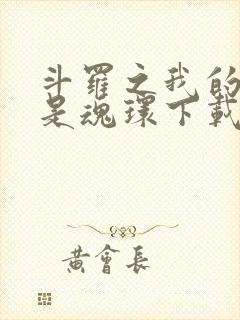 斗羅之我的
是魂環下載
黃會長